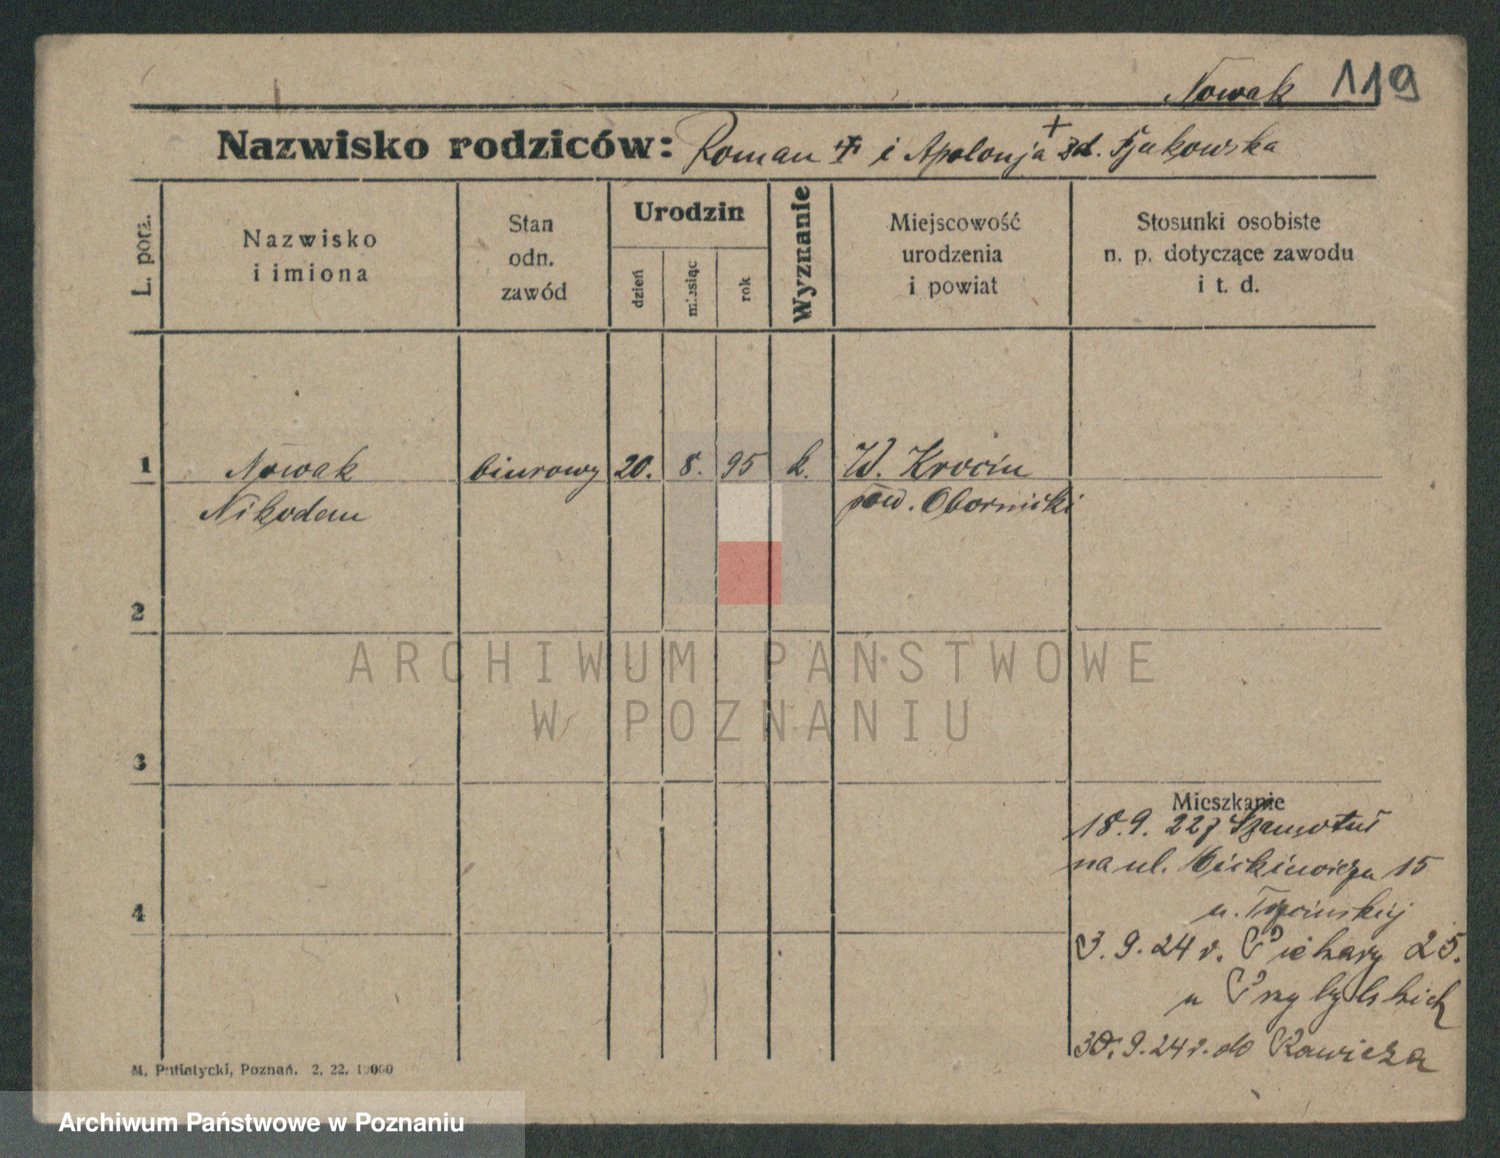 Nowak 119
Nazwisko rodziców: Roman i Apolonja
L. porz.
Nazwisko
i imiona
Stan
odn.
zawód
Urodzin
dzień
miesiąc
rok
Wyznanie
Miejscowość
urodzenia
i powiat
Stosunki osobiste
n. p. dotyczące zawodu
i t. d.
1 Nowak biurowy 20. 8. 95 k. W. Krocin
Nikodem pow. Obornicki
2
3
4
Mieszkanie
18.9. 22 z
na ul. 15
u.
3. 9. 24 r. Piekary 25.
u Przybylskich
30. 9. 24 r. do Rawicza
M. Putiatycki, Poznań. 2. 22. 10000
ARCHIWUM PAŃSTWOWE
W POZNANIU
Archiwum Państwowe w Poznaniu